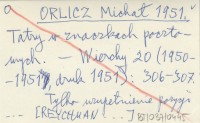 ORLICZ Michał 1951.
Tatry w znaczkach poczto-
wych. — Wierchy 20 (1950-
-1951, druk 1951): 306-307.
Tylko uzupełnienie pozycji
[REYCHMAN ]